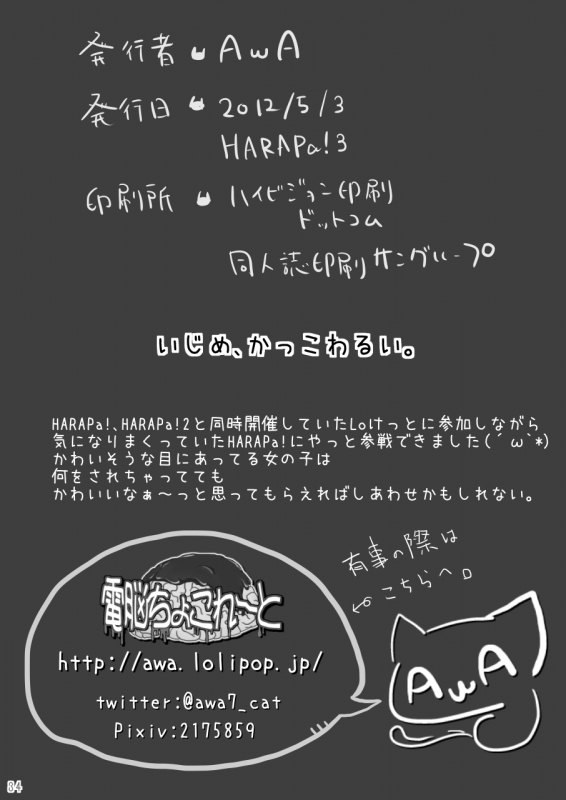 発行者 AwA
発行日 2012/5/3
HARAPa!3
印刷所 ハイビジョン印刷
ドットコム
同人誌印刷サングループ
いじめ、かっこわるい。
HARAPa!、HARAPa!2と同時開催していたLoけっとに参加しながら
気になりまくっていたHARAPa!にやっと参戦できました(´ω`*)
かわいそうな目にあってる女の子は
何をされちゃってても
かわいいなぁ～っと思ってもらえればしあわせかもしれない。
有事の際は
こちらへ。
電脳ちょこれーと
http://awa.lolipop.jp/
twitter:@awa7_cat
Pixiv:2175859
AwA
34